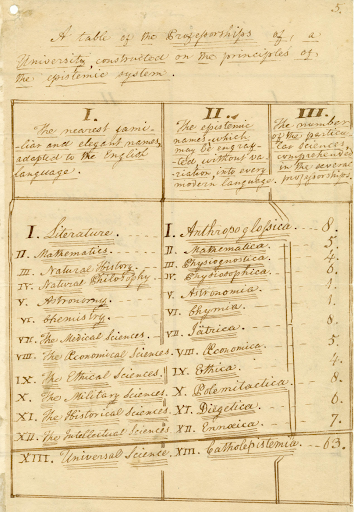 5.
A table of the Professorships of a
University constructed on the principles of
the epistemic system.
I.
The nearest fami-
liar and elegant names,
adapted to the English
language.
II.
The epistemic
names, which
may be engraf-
ted, without va-
riation, into every
modern language.
III.
The number
of the particu-
lar sciences,
comprehended
in the several
professorships.
I. Literature. I. Anthropoglossica. 8.
II. Mathematics. II. Mathematica. 5.
III. Natural History. III. Physiognostica. 4.
IV. Natural Philosophy IV. Physiosophica. 6.
V. Astronomy. V. Astronomia. 1.
VI. Chemistry. VI. Chymia. 1.
VII. The Medical Sciences. VII. Iätrica. 8.
VIII. The Economical Sciences. VIII. Œconomica. 5.
IX. The Ethical Sciences. IX. Ethica. 4.
X. The Military Sciences. X. Polemitactica. 8.
XI. The Historical Sciences. XI. Diëgetica. 6.
XII. The Intellectual Sciences. XII. Ennœica. 7.
XIII. Universal Science. XIII. Catholepistemia. 63.